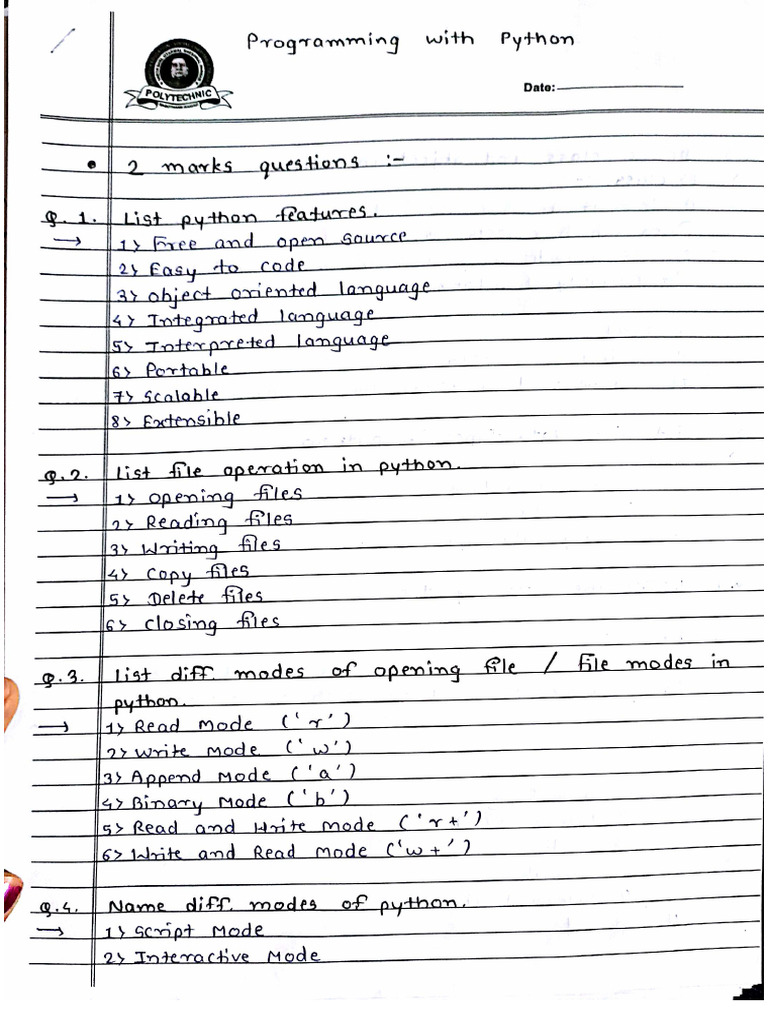 Programming with Python
POLYTECHNIC
Date:
• 2 marks questions :-
Q.1. List python features.
→ 1) Free and open source
2) Easy to code
3) object oriented language
4) Integrated language
5) Interpreted language
6) Portable
7) Scalable
8) Extensible
Q.2. List file operation in python.
→ 1) opening files
2) Reading files
3) Writing files
4) Copy files
5) Delete files
6) closing files
Q.3. List diff. modes of opening file / file modes in
python.
→ 1) Read Mode ('r')
2) Write Mode ('w')
3) Append Mode ('a')
4) Binary Mode ('b')
5) Read and Write mode ('r+')
6) Write and Read Mode ('w+')
Q.4. Name diff. modes of python.
→ 1) Script Mode
2) Interactive Mode